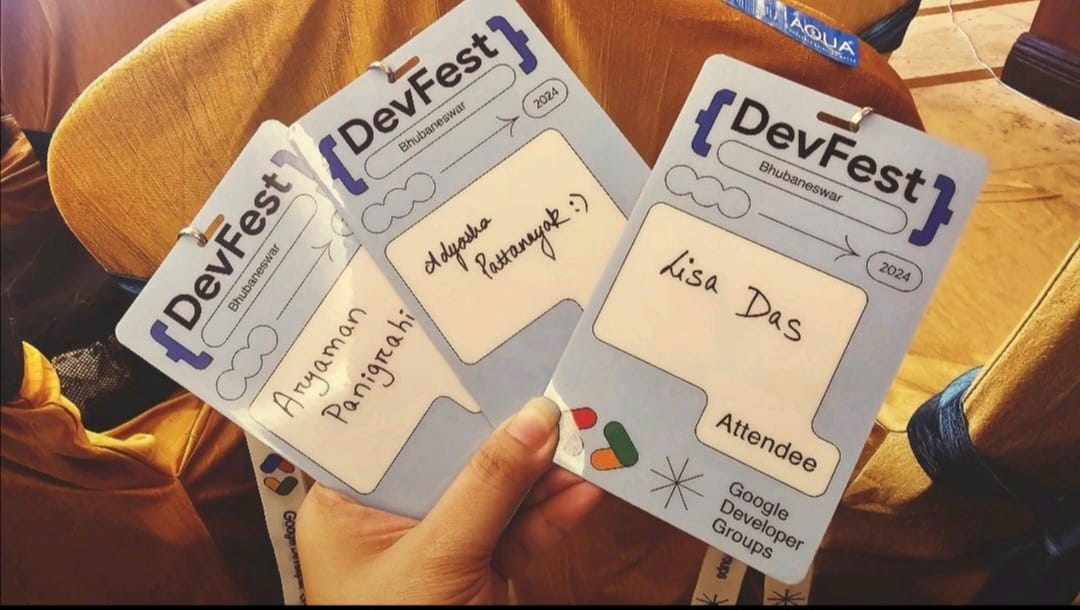 {DevFest}
Bhubaneswar
Aryaman
Panigrahi
{DevFest}
Bhubaneswar
2024
Adyasha
Pattanayak :)
{DevFest}
Bhubaneswar
2024
Lisa Das
Attendee
Google
Developer
Groups
AQUA
Google